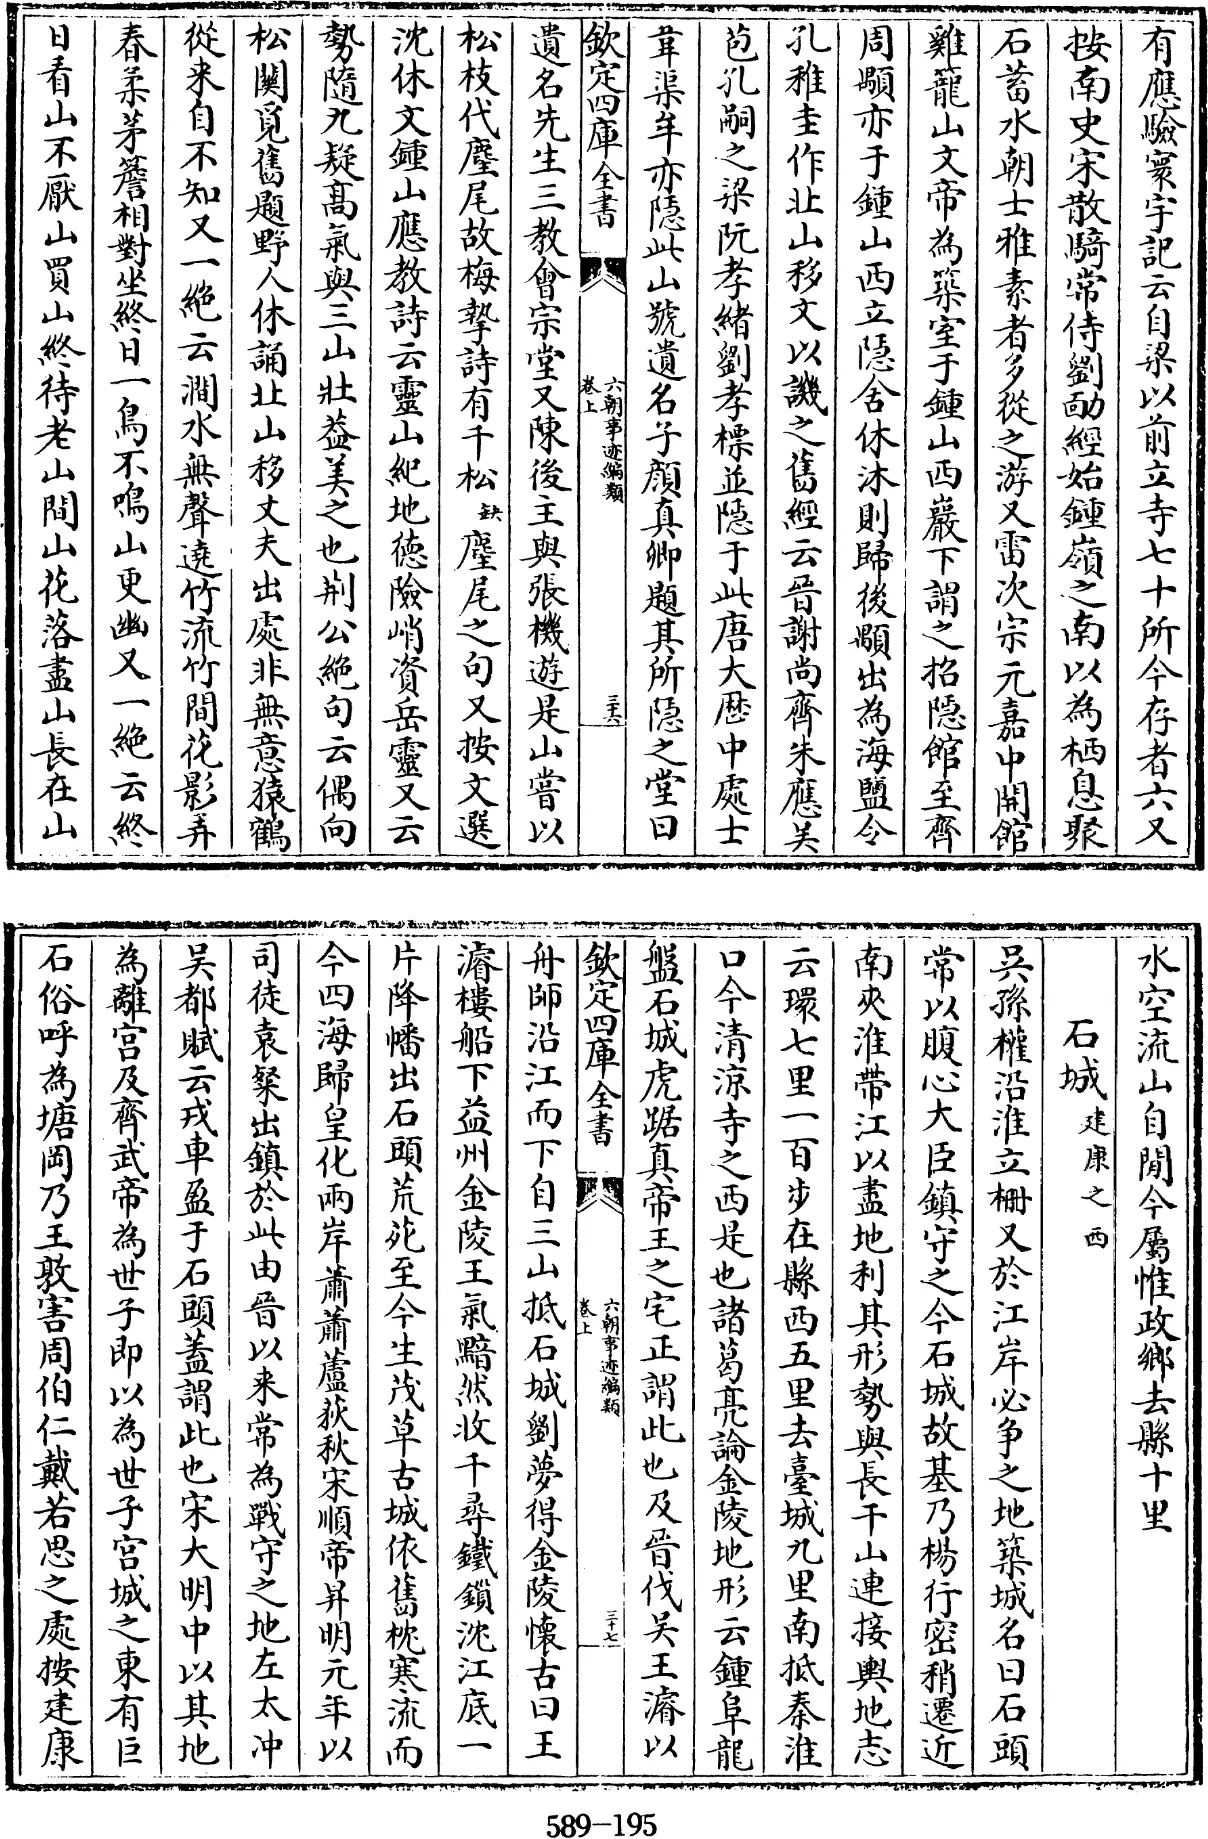 有應驗寰宇記云自梁以前立寺七十所今存者六又
按南史宋散騎常侍劉勔經始鍾嶺之南以為栖息聚
石蓄水朝士雅素者多從之游又雷次宗元嘉中開館
雞籠山文帝為築室于鍾山西巖下謂之招隱館至齊
周顒亦于鍾山西立隱舍休沐則歸後顒出為海鹽令
孔稚圭作北山移文以譏之舊經云晉謝尚齊朱應吳
苞孔嗣之梁阮孝緒劉孝標並隱于此唐大歴中處士
韋渠牟亦隱此山號遺名子顔真卿題其所隱之堂曰
欽定四庫全書
六朝事迹編類
卷上
三十六
遺名先生三教會宗堂又陳後主與張機遊是山嘗以
松枝代麈尾故梅摯詩有千松缺麈尾之句又按文選
沈休文鍾山應教詩云靈山紀地德險峭資岳靈又云
勢隨九疑髙氣與三山壯益美之也荆公絶句云偶向
松關覓舊題野人休誦北山移丈夫出處非無意猿鶴
從来自不知又一絶云澗水無聲遶竹流竹間花影弄
春柔茅簷相對坐終日一鳥不鳴山更幽又一絶云終
日看山不厭山買山終待老山間山花落盡山長在山
水空流山自閒今屬惟政鄉去縣十里
石城建康之西
吳孫權沿淮立柵又於江岸必爭之地築城名曰石頭
常以腹心大臣鎮守之今石城故基乃楊行密稍遷近
南夾淮帶江以盡地利其形勢與長干山連接輿地志
云環七里一百步在縣西五里去臺城九里南抵秦淮
口今清涼寺之西是也諸葛亮論金陵地形云鍾阜龍
盤石城虎踞真帝王之宅正謂此也及晉伐吳王濬以
欽定四庫全書
六朝事迹編類
卷上
三十七
舟師沿江而下自三山抵石城劉夢得金陵懷古曰王
濬樓船下益州金陵王氣黯然收千尋鐵鎖沈江底一
片降幡出石頭荒苑至今生茂草古城依舊枕寒流而
今四海歸皇化兩岸蕭蕭蘆荻秋宋順帝昇明元年以
司徒袁粲出鎮於此由晉以来常為戰守之地左太冲
吳都賦云戎車盈于石頭蓋謂此也宋大明中以其地
為離宫及齊武帝為世子即以為世子宫城之東有巨
石俗呼為塘岡乃王敦害周伯仁戴若思之處按建康
589-195